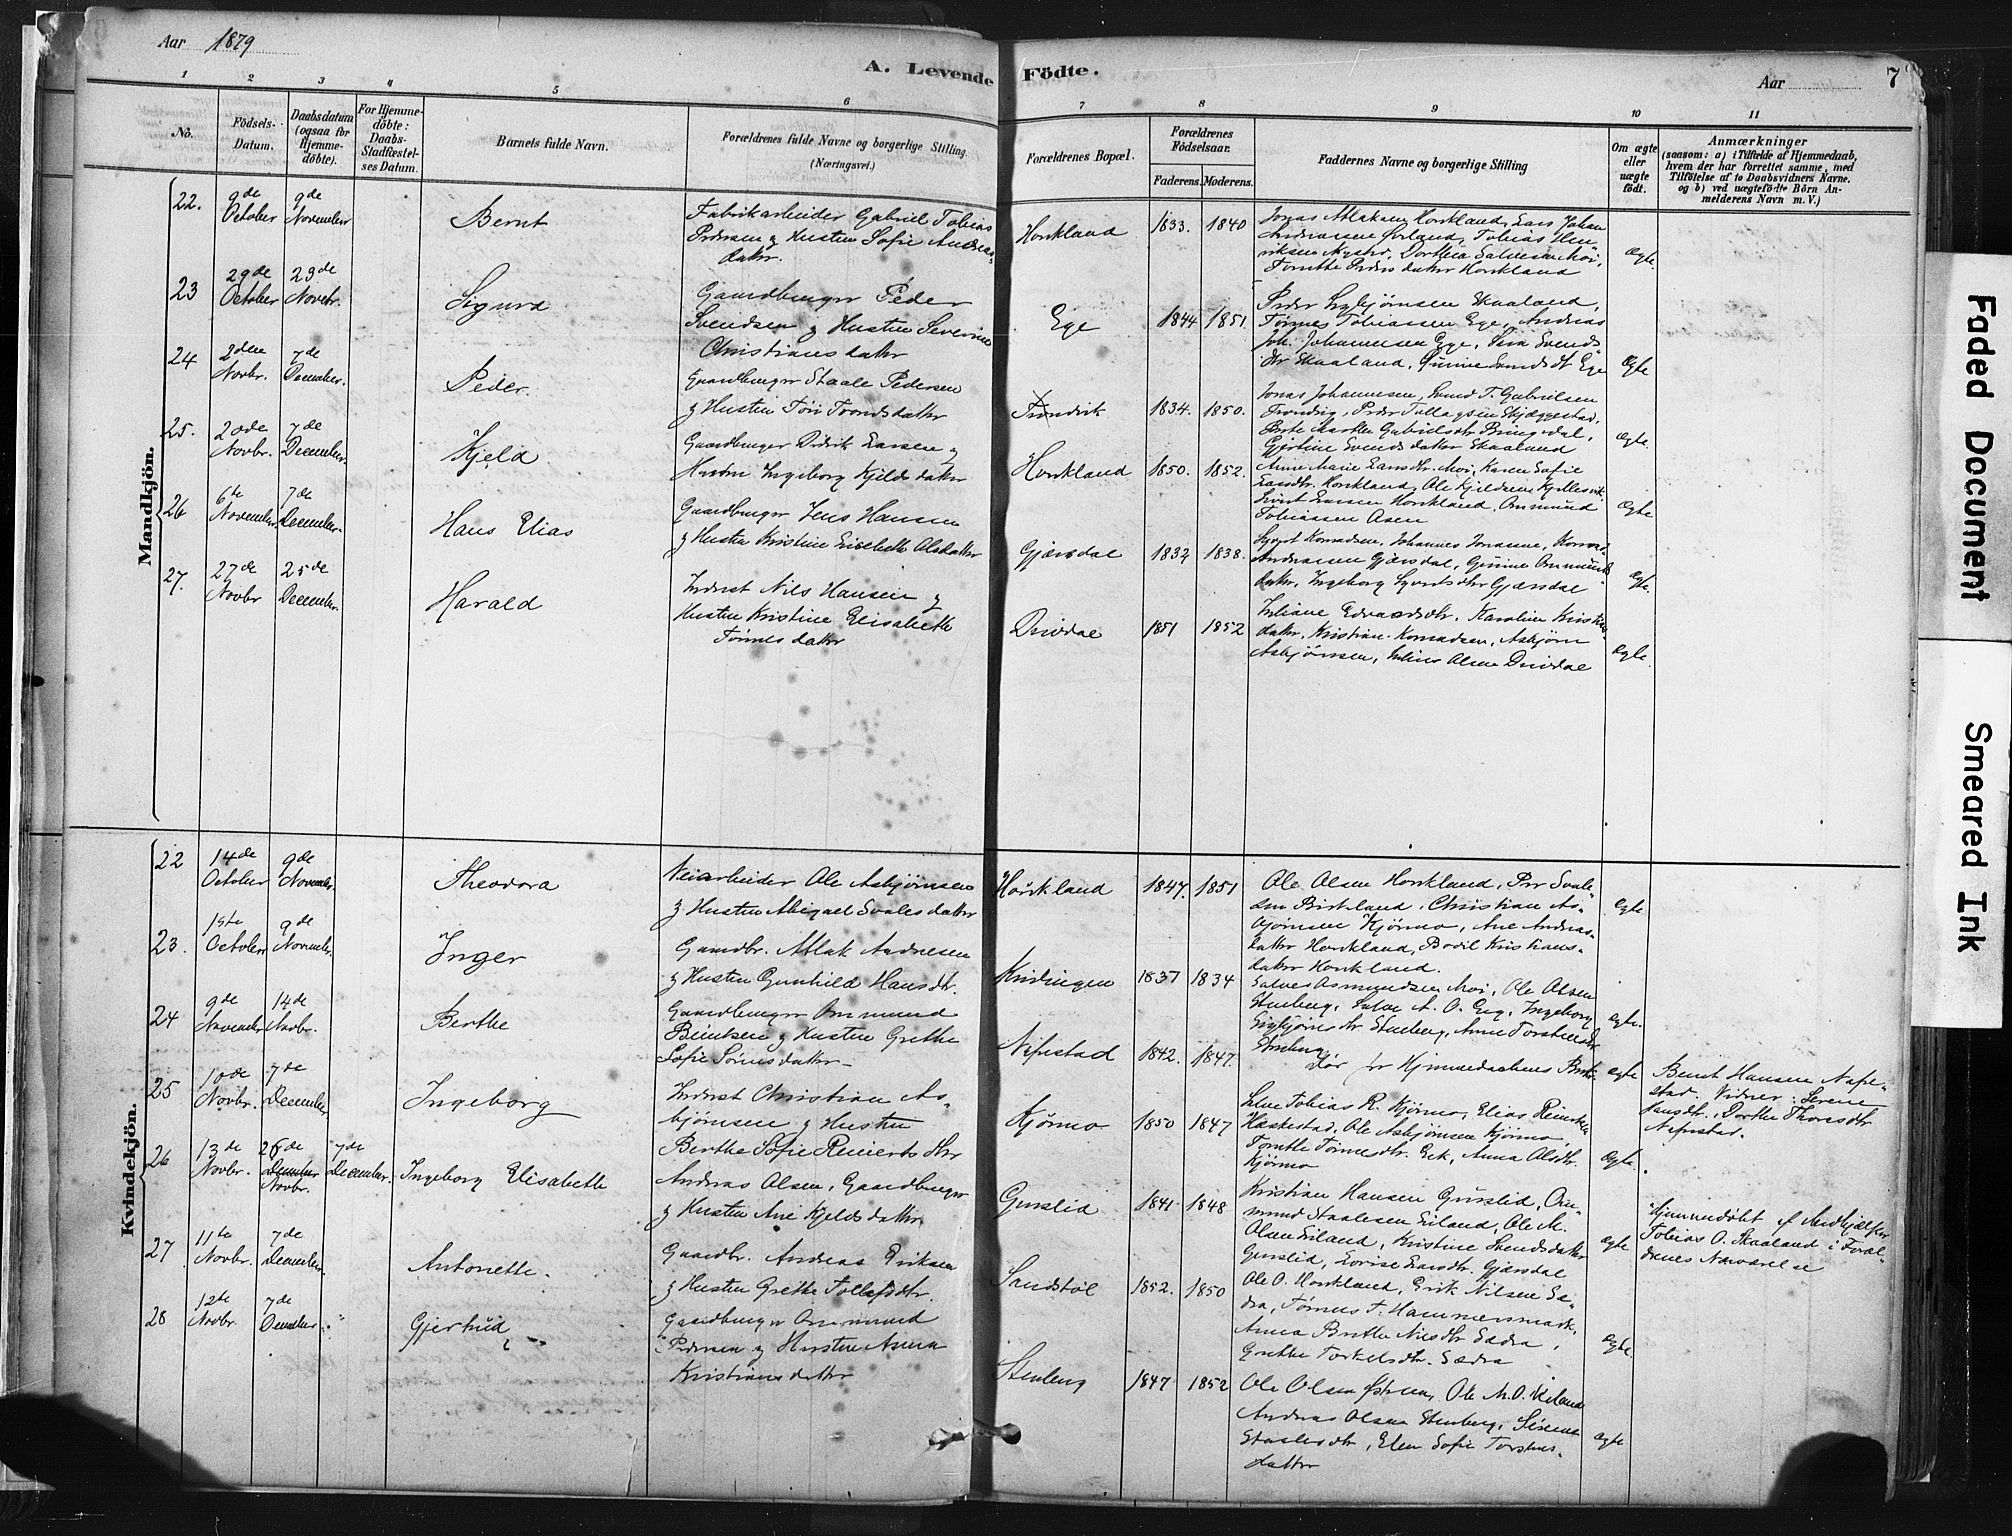 Aar 1879
A. Levende Födte.
Aar
7
1 2 3 4 5 6 7 8 9 10 11
No.
Födsels-Datum.
Daabsdatum (ogsaa for Hjemme-döbte).
For Hjemme-döbte: Daabs-Stadfæstel-ses Datum.
Barnets fulde Navn.
Forældrenes fulde Navne og borgerlige Stilling.
(Næringsvei.)
Forældrenes Bopæl.
Forældrenes Födselsaar.
Faderens. Moderens.
Faddernes Navne og borgerlige Stilling
Om ægte eller uægte födt.
Anmærkninger
(saasom: a) i Tilfælde af Hjemmedaab,
hvem der har forrettet samme, med
Tilföielse af to Daabsvidners Navne.
og b) ved uægtefödte Börn An-
melderens Navn m. V.)
Mandkjön.
22. 9de October 9de November Bernt
Fabrikarbeider Gabriel Tobias
Pedersen og Hustru Sofie Andreas-
datter.
Honkland 1833. 1840
Jonas Atlaksen Honkland, Lars Johan
Andreassen Ørland, Tobias Hen-
riksen Nystad, Dorthea Salvesen Moi,
Tomette Pedersdatter Honkland
ægte.
23 29de October 23de Novebr. Sigurd
Gaardbruger Peder
Svendsen og Hustru Severine
Christiansdatter
Ege 1844 1851.
Peder Sigbjørnsen Skaaland,
Tønnes Tobiassen Ege, Andreas
Joh. Johannesen Ege, Sina Svends
dtr Skaaland, Gunine Svendsdt Ege
ægte
24 2den Novbr. 7de December. Peder.
Gaardbruger Staale Pedersen
og Hustru Tøri Trondsdatter
Trondvik 1834. 1850.
Jonas Johannesen, Svend T. Gabrielsen
Trondvig, Peder Tollagsen Skjæggestad,
Berte Marthe Gabrielsdtr Bringedal,
Gjertine Svendsdatter Skaaland
ægte.
25. 20de Novbr. 7de December. Kjeld.
Gaardbruger Didrik Larsen og
Hustru Ingeborg Kjeldsdatter
Honkland 1850. 1852.
Anne Marie Larsdtr. Moi, Karen Sofie
Larsdtr. Honkland, Ole Kjeldsen Kjellesvik
Sivert Larsen Honkland, Ommund
Tobiassen Aasen
ægte
26 6te November. 7de December. Hans Elias
Gaardbruger Jens Hansen
og Hustru Kristine Elisabeth Olsdatter
Gjersdal 1832 1838.
Syvert Konradsen, Johannes Jonassen, Konrad
Andreassen Gjersdal, Gunine Ommunds
datter, Ingeborg Syvertsdtr Gjersdal
ægte.
27. 27de Novbr 25de December. Harald
Inderst Nils Hansen og
Hustru Kristine Elisabeth
Tønnesdatter
Drivdal 1851 1852
Juliane Edvardsdtr. Karoline Kristians
datter, Kristian Konradsen, Asbjørn
Asbjørnsen, Julius Olsen Drivdal
ægte.
Kvindekjön.
22 14de October 9de November. Theodora
Veiarbeider Ole Asbjørnsen
og Hustru Abigael Svalesdatter
Honkland 1847. 1851
Ole Olsen Honkland, Per Svale-
sen Birkland, Christian As-
bjørnsen Kjørmo, Ane Andreas-
datter Honkland, Bodil Kristians-
datter Honkland.
ægte.
23. 1ste October 9de November. Inger
Gaardbr. Atlak Andresen
og Hustru Gunhild Hansdtr.
Kvidingen 1837 1834
Salves Osmundsen Moi, Ole Olsen
Stenberg, Salve A. O. Eeg, Ingeborg
Sigbjørnsdtr Stenberg, Anne Torstensdtr
Stenberg.
ægte.
24 9de November 14de Novbr. Berthe
Gaardbruger Ommund
Beintsen og Hustru Grethe
Sofie Sørensdatter
Nefsestad 1842. 1847.
dør før Hjemmedaabens Bekr.
ægte
Berent Hansen Nefse-
stad. Vidner: Serene
Hansdtr., Dorthe Thoresdtr
Nefsestad.
25 10de Novbr. 7de December. Ingeborg
Inderst Christian As-
bjørnsen og Hustru
Berthe Sofie Reiertsdtr
Kjørmo 1850 1847
Salve Tobias R. Kjørmo, Elias Reinertsen
Hæskestad, Ole Asbjørnsen Kjørmo,
Tomette Tønnesdtr. Eek, Anna Olsdtr.
Kjørmo
ægte.
26 13de Novbr. 26de December Novbr. 7de December. Ingeborg Elisabeth
Andreas Olsen, Gaardbruger
og Hustru Ane Kjeldsdatter
Gurslid 1841 1848
Kristian Hansen Gurslid, Om-
mund Staalesen Eiland, Ole M.
Olsen Eiland, Kristine Svendsdatter
Gurslid, Lovise Larsdtr. Gjersdal
ægte
Hjemmedøbt af Medhjælper
Tobias O. Skaaland i Foræl-
drenes Nærværelse
27 11te Novbr. 7de December. Antonette.
Gaardbr. Andreas Eriksen
og Hustru Grethe Tollefsdtr.
Sandstøl 1852. 1850
Ole O. Honkland, Erik Nilsen Sæ-
dra, Tønnes T. Hammersmark,
Anna Berthe Nilsdtr Sædra,
Grethe Torkelsdtr. Sædra
ægte.
28 12te Novbr. 7de December. Gjertrud
Gaardbruger Ommund
Pedersen og Hustru Asena
Kristiansdatter
Stenberg 1847 1852
Ole Olsen Østreim, Ole M. O. Eiland
Andreas Olsen Stenberg, Serene
Staalesdtr, Elen Sofie Torstens-
datter
ægte
Faded Document
Smeared Ink